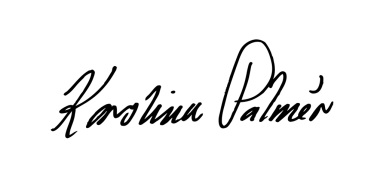 Karolina Palmér